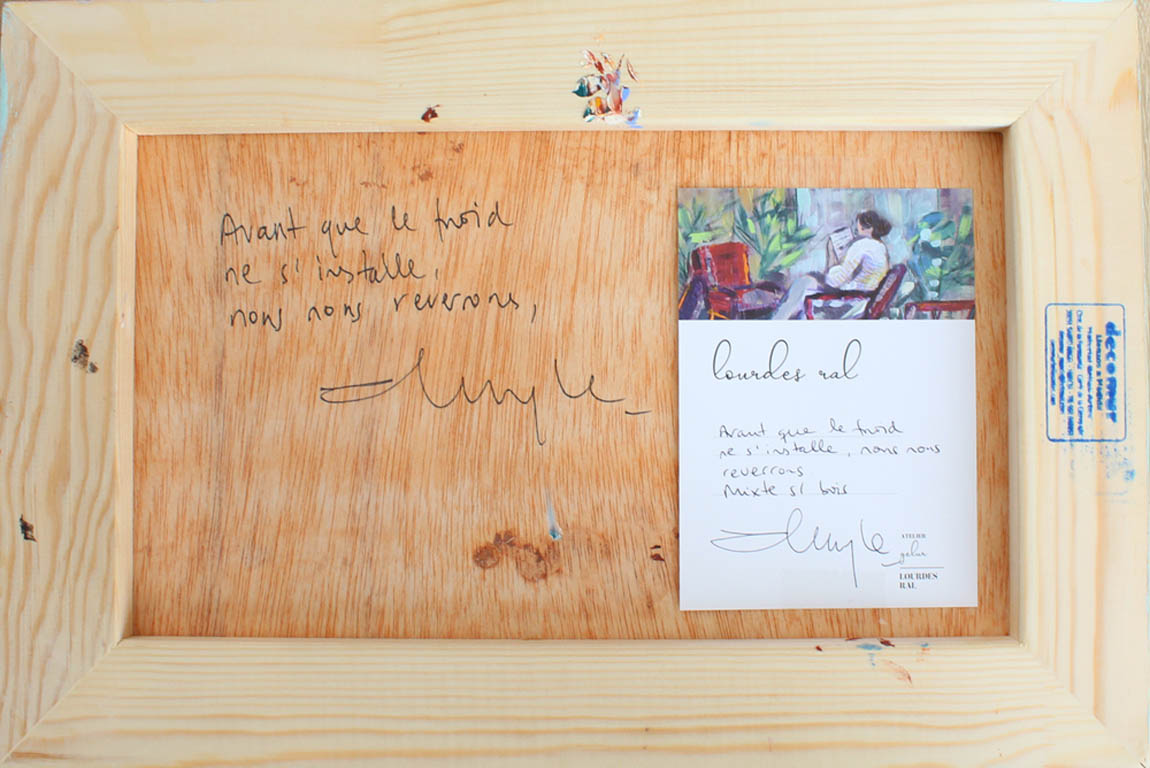 Avant que le froid
ne s'installe,
nous nous reverrons,
lourdes ral
Avant que le froid
ne s'installe, nous nous
reverrons
Mixte s/ bois
ATELIER
LOURDES
RAL
decomer